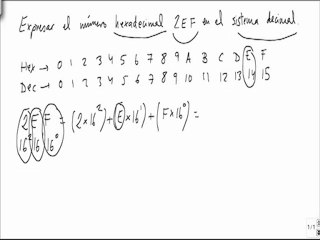 Expresar el número hexadecimal 2EF en el sistema decimal.
Hex → 0 1 2 3 4 5 6 7 8 9 A B C D E F
Dec → 0 1 2 3 4 5 6 7 8 9 10 11 12 13 14 15
2 E F = (2×16²)+(E×16¹)+(F×16⁰)=
16² 16 16⁰
1/1